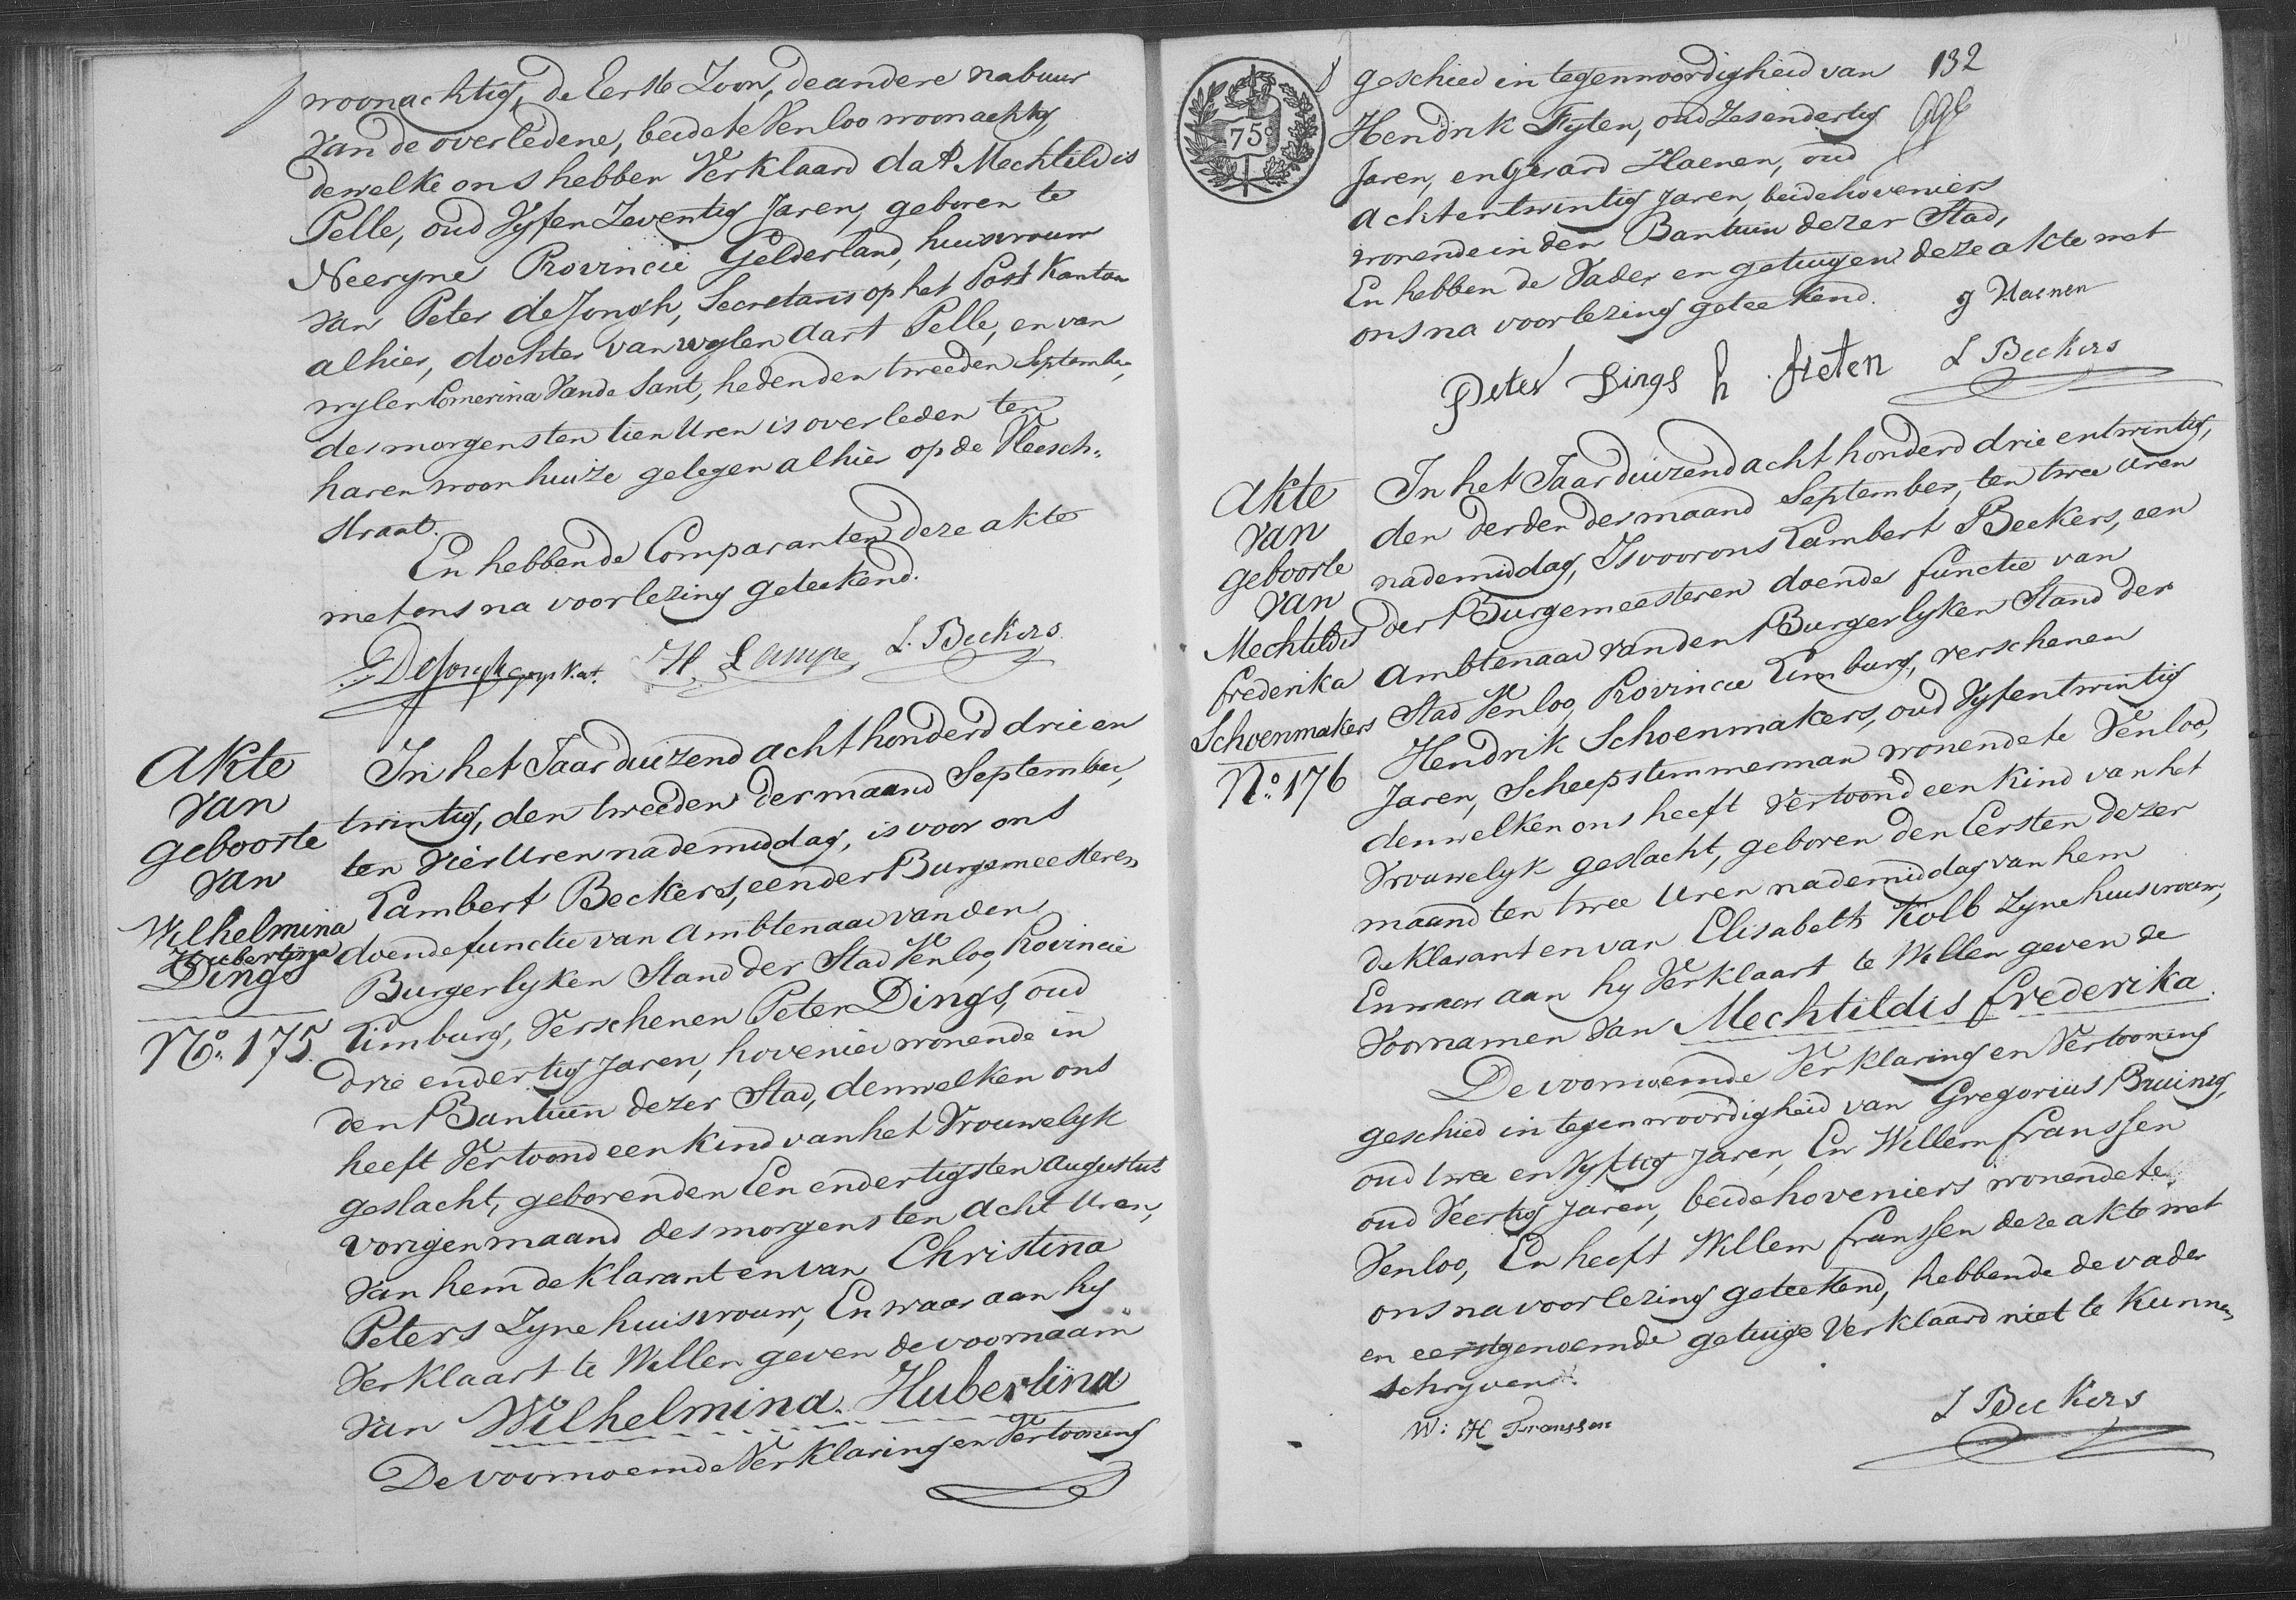 woonachtig, de Eerste Zoon, de andere nabuur
van de overledene, beide te Venloo woonachtig
dewelke ons hebben Verklaard dat Mechtildis
Pelle, oud Vyfen Zeventig Jaren, geboren te
Neeryne Provincie Gelderland, huisvrouw
van Peter de Jongh, Secretaris op het Post Kantoor
alhier, dochter van wylen Aart Pelle, en van
wylen Comerina Van de Sant, heden den tweeden September,
des morgens ten tien Uren is overleden ten
haren woonhuize gelegen alhier op de Vleesch-
straat.
En hebben de Comparanten deze akte
met ons na voorlezing geteekend.
DeJongh H. Lampe L. Beckers
Akte
van
geboorte
van
Wilhelmina
Hubertina
Dings
No. 175.
In het Jaar duizend acht honderd drie en
twintig, den tweeden der maand September,
ten vier Uren nademiddag, is voor ons
Lambert Beckers, een der Burgemeesteren,
doende functie van Ambtenaar van den
Burgerlyken Stand der Stad Venloo, Provincie
Limburg, Verschenen Peter Dings, oud
drie endertig Jaren, hovenier wonende in
den Bantuin dezer Stad, denwelken ons
heeft Vertoond een Kind van het Vrouwelyk
geslacht, geboren den Een endertigsten Augustus
vorigen maand des morgens ten acht Uren,
van hem deklarant en van Christina
Peters Zyne huisvrouw, En waar aan hy
Verklaart te Willen geven de voornaam
van Wilhelmina. Hubertina
De voornoemde Verklaring en Vertooning
132
geschied in tegenwoordigheid van
Hendrik Fyten, oud Zesendertig
Jaren, en Gerard Haenen, oud
achtentwintig Jaren, beide hoveniers
wonende in den Bantuin dezer Stad,
En hebben de Vader en getuigen deze akte met
ons na voorlezing geteekend.
g Haenen
Peter Dings h fieten L Beckers
75c
Akte
van
geboorte
van
Mechtildis
frederika
Schoenmakers
No. 176
In het Jaar duizend acht honderd drie entwintig,
den derden der maand September, ten twee uren
nademiddag, Is voor ons Lambert Beekers, een
der Burgemeesteren doende functie van
Ambtenaar van den Burgerlyken Stand der
Stad Venloo, Provincie Limburg, verschenen
Hendrik Schoenmakers, oud Vyfentwintig
Jaren, Scheepstimmerman wonende te Venloo,
denwelken ons heeft Vertoond een Kind van het
Vrouwelyk geslacht, geboren den Eersten dezer
maand ten twee Uren nademiddag van hem
deklarant en van Elisabeth Kolb Zyne huisvrouw,
En waar aan hy Verklaart te Willen geven de
Voornamen van Mechtildis frederika.
De voornoemde Verklaring en Vertooning
geschied in tegenwoordigheid van Gregorius Bruins,
oud twee en Vyftig Jaren, En Willem franssen
oud Veertig Jaren, beide hoveniers wonende te
Venloo, En heeft Willem franssen deze akte met
ons na voorlezing geteekend, hebbende de vader
en eerstgenoemde getuige Verklaard niet te Kunnen
schryven.
W: H Franssen
L Beckers